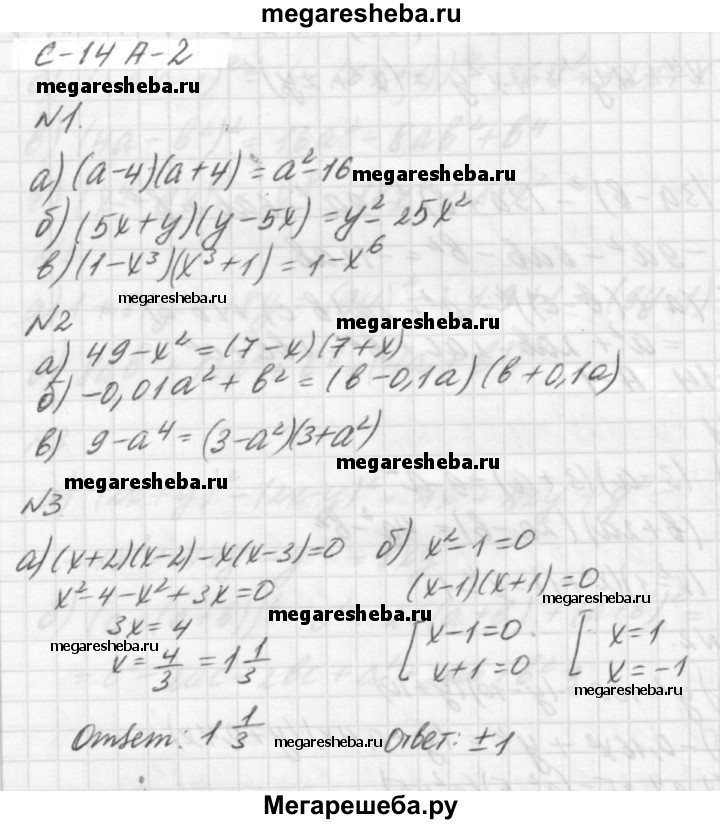 megaresheba.ru
С-14 А-2
megaresheba.ru
№1.
а) (a-4)(a+4) = a²-16
megaresheba.ru
б) (5x+y)(y-5x) = y²-25x²
в) (1-x³)(x³+1) = 1-x⁶
megaresheba.ru
№2
megaresheba.ru
а) 49-x² = (7-x)(7+x)
б) -0,01a² + b² = (b-0,1a)(b+0,1a)
в) 9-a⁴ = (3-a²)(3+a²)
megaresheba.ru
megaresheba.ru
№3
а) (x+2)(x-2)-x(x-3)=0
x²-4-x²+3x=0
3x=4
x= 4/3 = 1 1/3
Ответ: 1 1/3
б) x²-1=0
(x-1)(x+1)=0
megaresheba.ru
megaresheba.ru
megaresheba.ru
[ x-1=0 [ x=1
x+1=0 x=-1
megaresheba.ru
megaresheba.ru
Ответ: ±1
Мегарешеба.ру